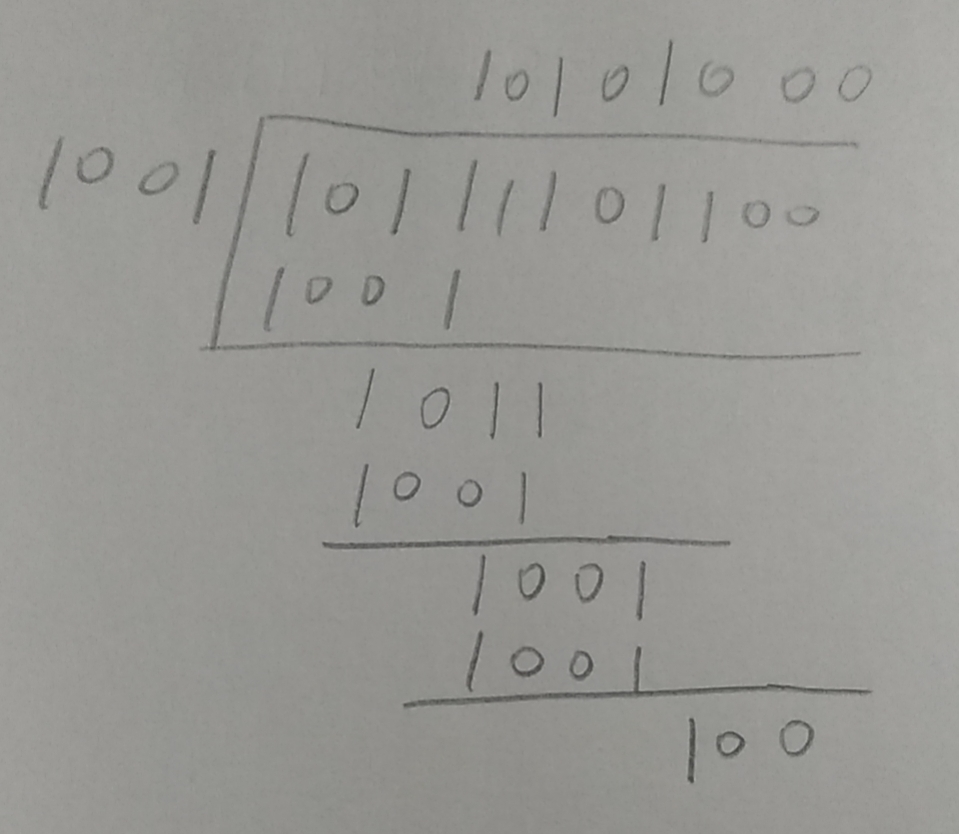 10101000
1001 10111101100
1001
1011
1001
1001
1001
100